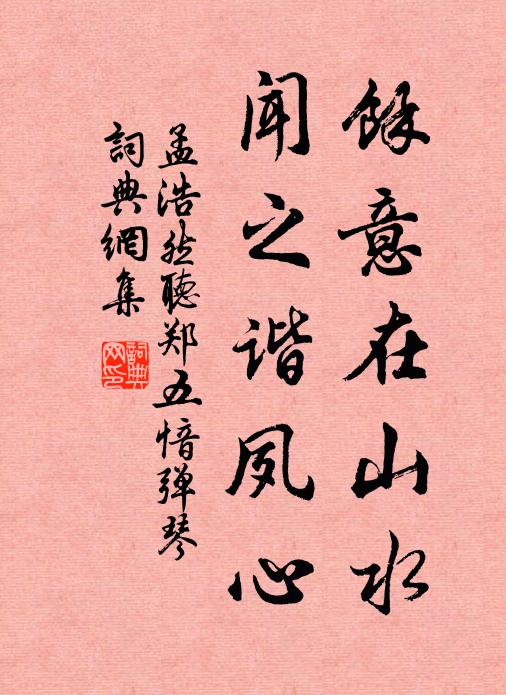 馀意在山水
闻之谐夙心
孟浩然聽郑五愔弹琴
詞典網集
詞典网印